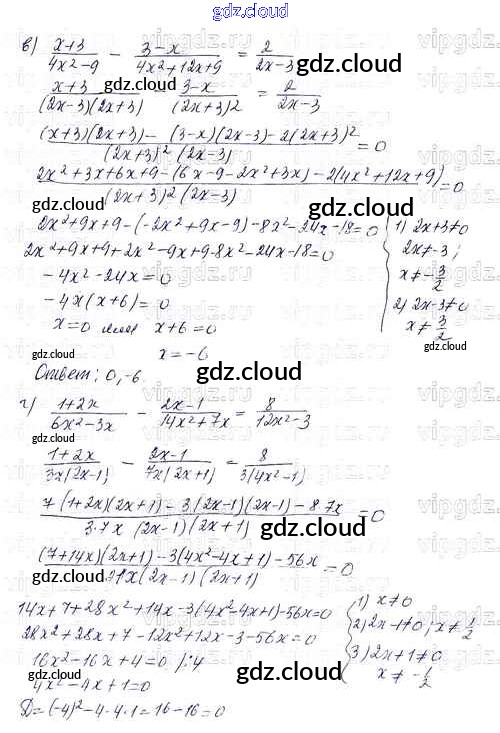 gdz.cloud
в) x+3/4x²-9 - 3-x/4x²+12x+9 = 2/2x-3
x+3/(2x-3)(2x+3) - 3-x/(2x+3)² = 2/2x-3
(x+3)(2x+3) - (3-x)(2x-3) - 2(2x+3)²/(2x+3)²(2x-3) = 0
2x²+3x+6x+9-(6x-9-2x²+3x)-2(4x²+12x+9)/(2x+3)²(2x-3) = 0
2x²+9x+9-(-2x²+9x-9)-8x²-24x-18=0
2x²+9x+9+2x²-9x+9-8x²-24x-18=0
-4x²-24x=0
-4x(x+6)=0
x=0 или x+6=0
x=-6
1) 2x+3≠0
2x≠-3;
x≠-3/2
2) 2x-3≠0
x≠3/2
Ответ: 0,-6.
г) 1+2x/6x²-3x - 2x-1/14x²+7x = 8/12x²-3
1+2x/3x(2x-1) - 2x-1/7x(2x+1) = 8/3(4x²-1)
7(1+2x)(2x+1)-3(2x-1)(2x-1)-8·7x/3·7x(2x-1)(2x+1) = 0
(7+14x)(2x+1)-3(4x²-4x+1)-56x/21x(2x-1)(2x+1) = 0
14x+7+28x²+14x-3(4x²-4x+1)-56x=0
28x²+28x+7-12x²+12x-3-56x=0
16x²-16x+4=0 /:4
4x²-4x+1=0
D=(-4)²-4·4·1=16-16=0
1) x≠0
2) 2x-1≠0; x≠1/2
3) 2x+1≠0
x≠-1/2